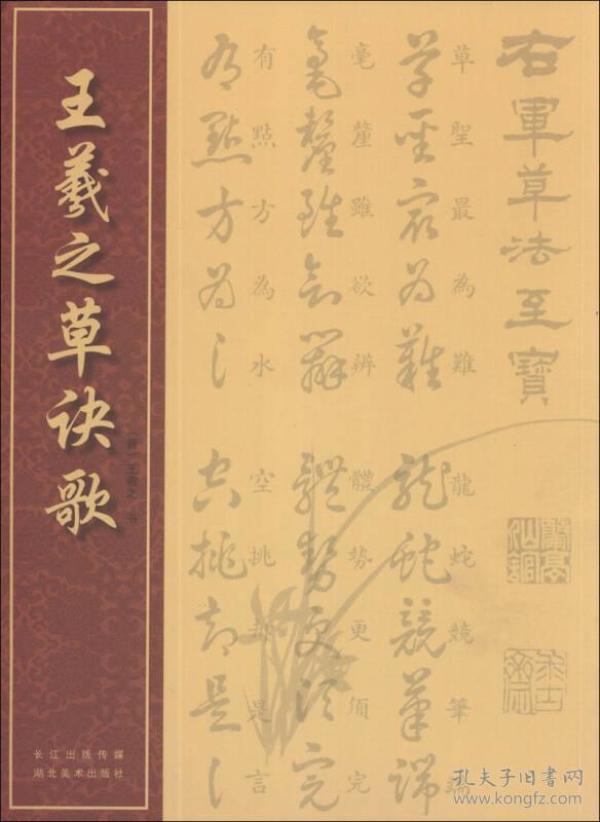 王羲之草诀歌
〔晋〕王羲之 书
长江出版传媒
湖北美术出版社
右軍草法至寶
草聖最為難
龍蛇競筆端
毫釐雖欲辨
體勢更須完
有點方為水
空挑却是言
蘭亭仙館
孔夫子旧书网
www.kongfz.com